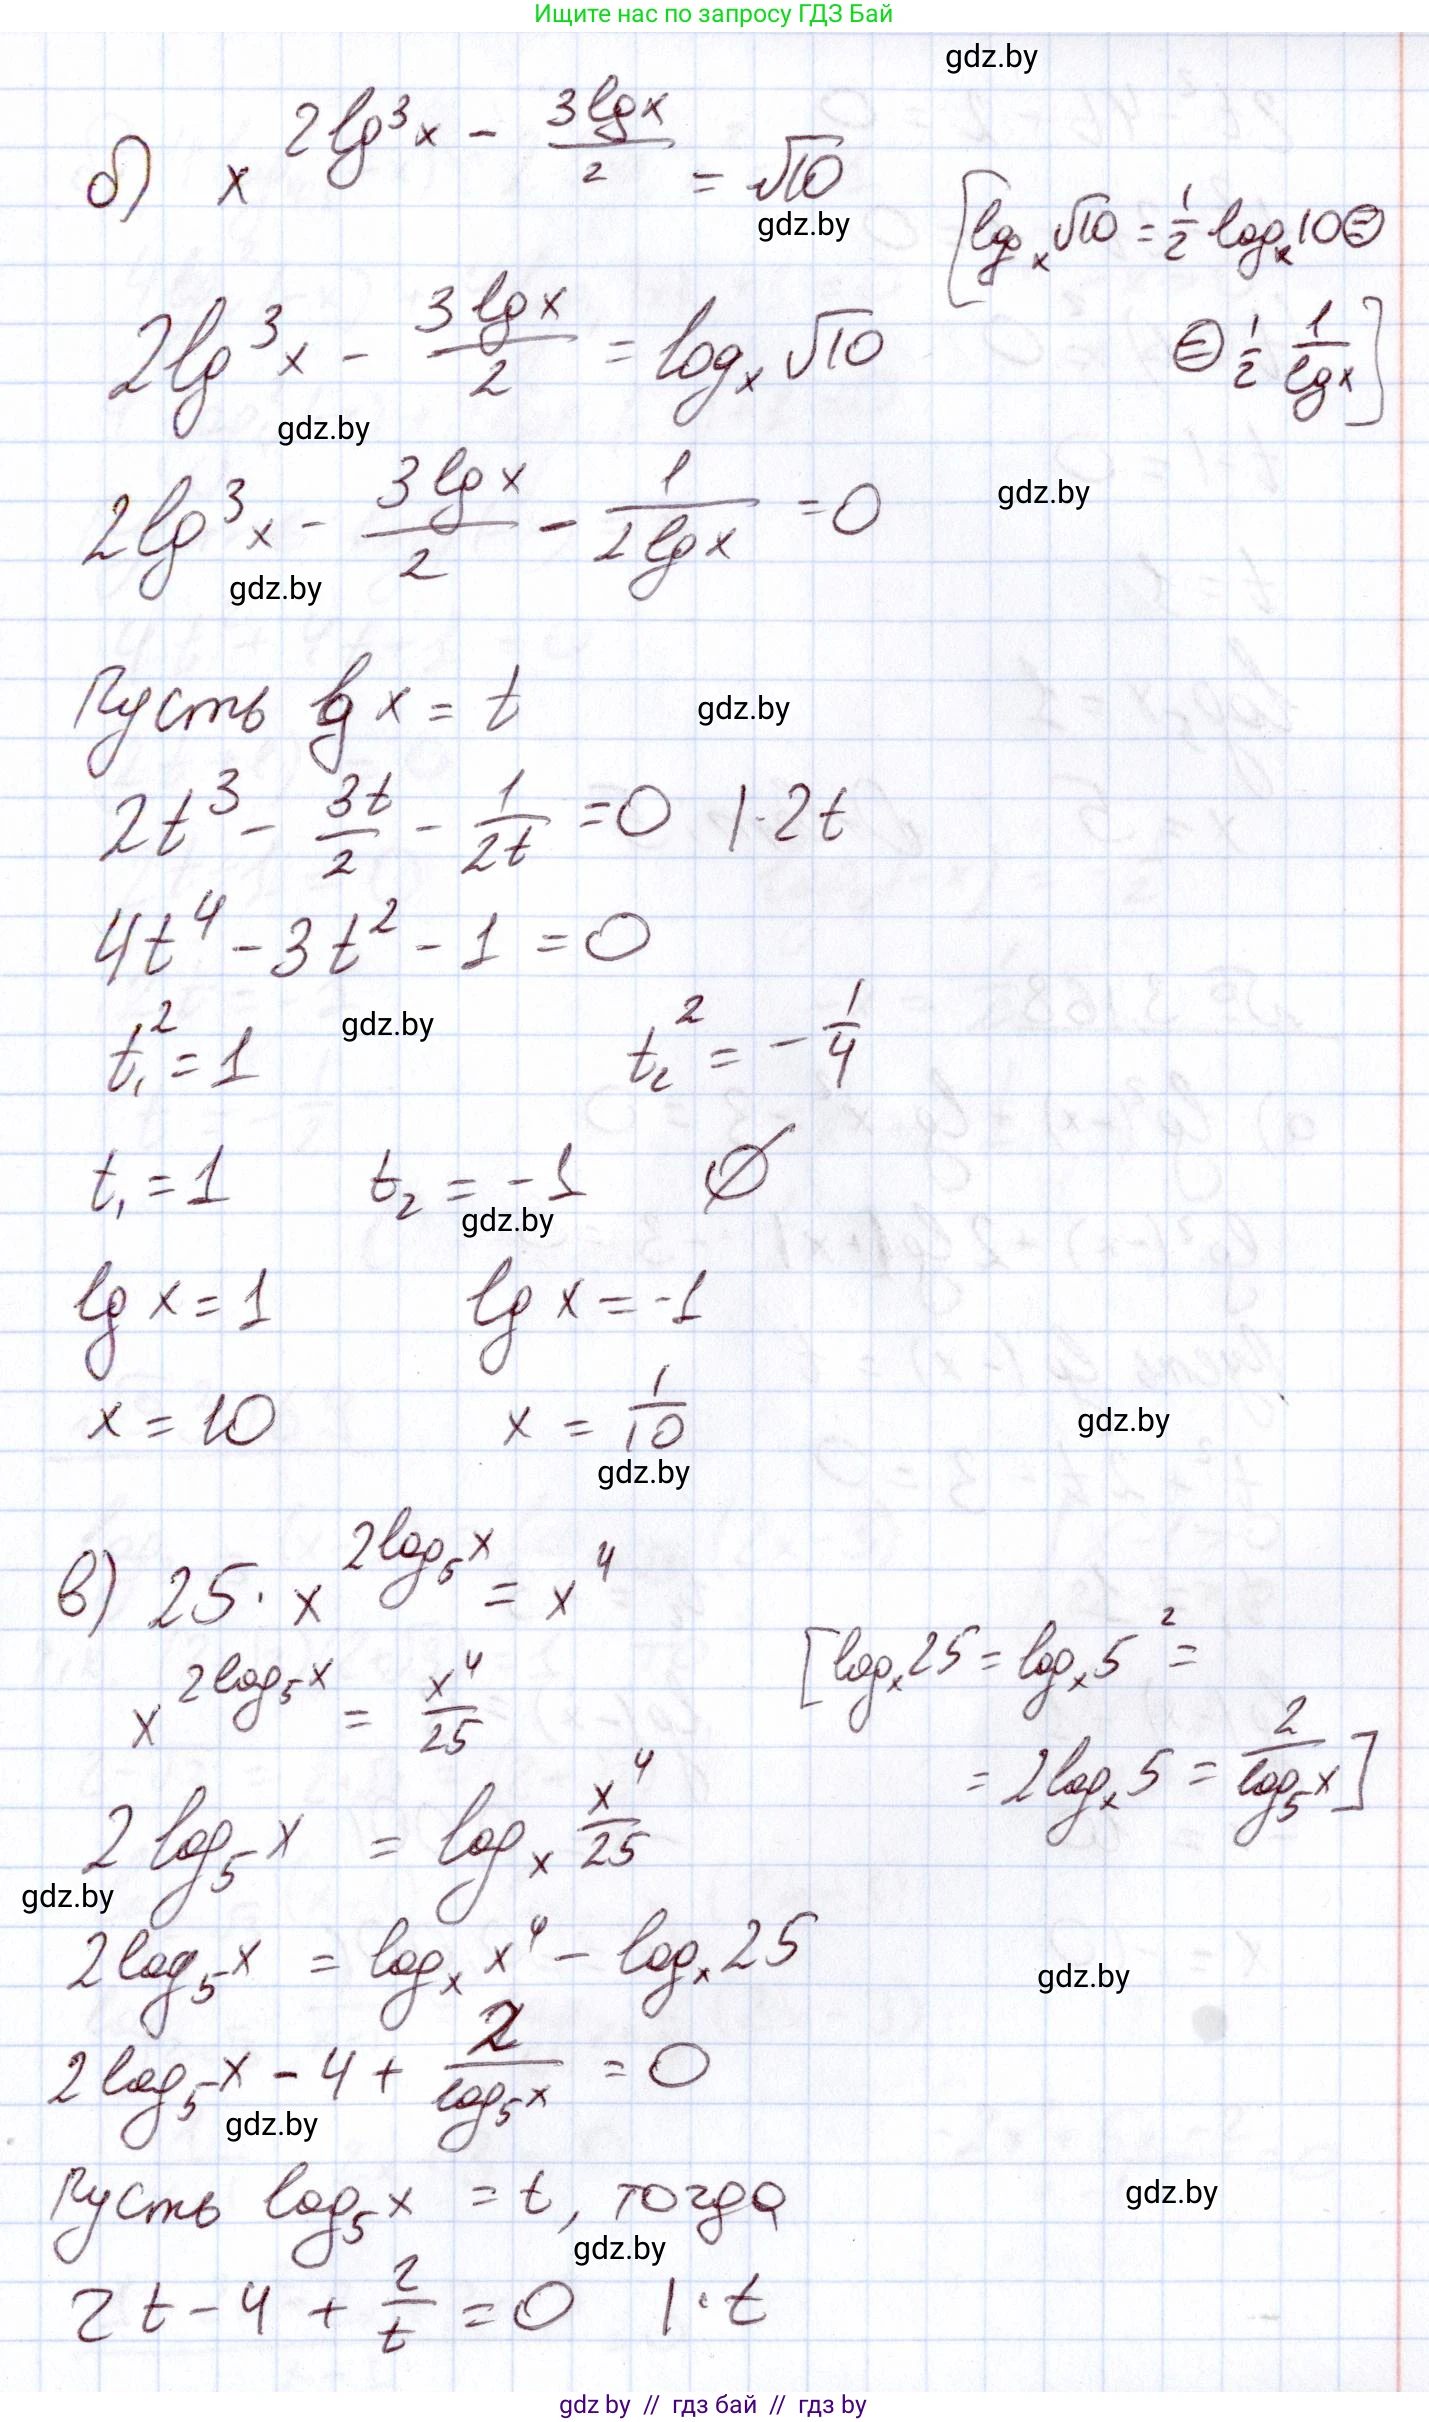 Ищите нас по запросу ГДЗ Бай
gdz.by
б) x^(2lg³x − 3lgx/2) = √10
gdz.by
[log_x √10 = 1/2 log_x 10 ⊜
2lg³x − 3lgx/2 = log_x √10
⊜ 1/2 · 1/lgx]
gdz.by
2lg³x − 3lgx/2 − 1/(2lgx) = 0
gdz.by
gdz.by
Пусть lg x = t
gdz.by
2t³ − 3t/2 − 1/(2t) = 0 |·2t
4t⁴ − 3t² − 1 = 0
gdz.by
t₁² = 1 t₂² = −1/4
t₁ = 1 t₂ = −1 ∅
gdz.by
lg x = 1 lg x = −1
x = 10 x = 1/10
gdz.by
gdz.by
в) 25 · x^(2log₅x) = x⁴
x^(2log₅x) = x⁴/25
[log_x 25 = log_x 5² =
= 2log_x 5 = 2/log₅x]
2 log₅x = log_x x⁴/25
gdz.by
2log₅x = log_x x⁴ − log_x 25
gdz.by
2log₅x − 4 + 2/log₅x = 0
gdz.by
Пусть log₅x = t, тогда
gdz.by
gdz.by
2t − 4 + 2/t = 0 |·t
gdz by // гдз бай // гдз by